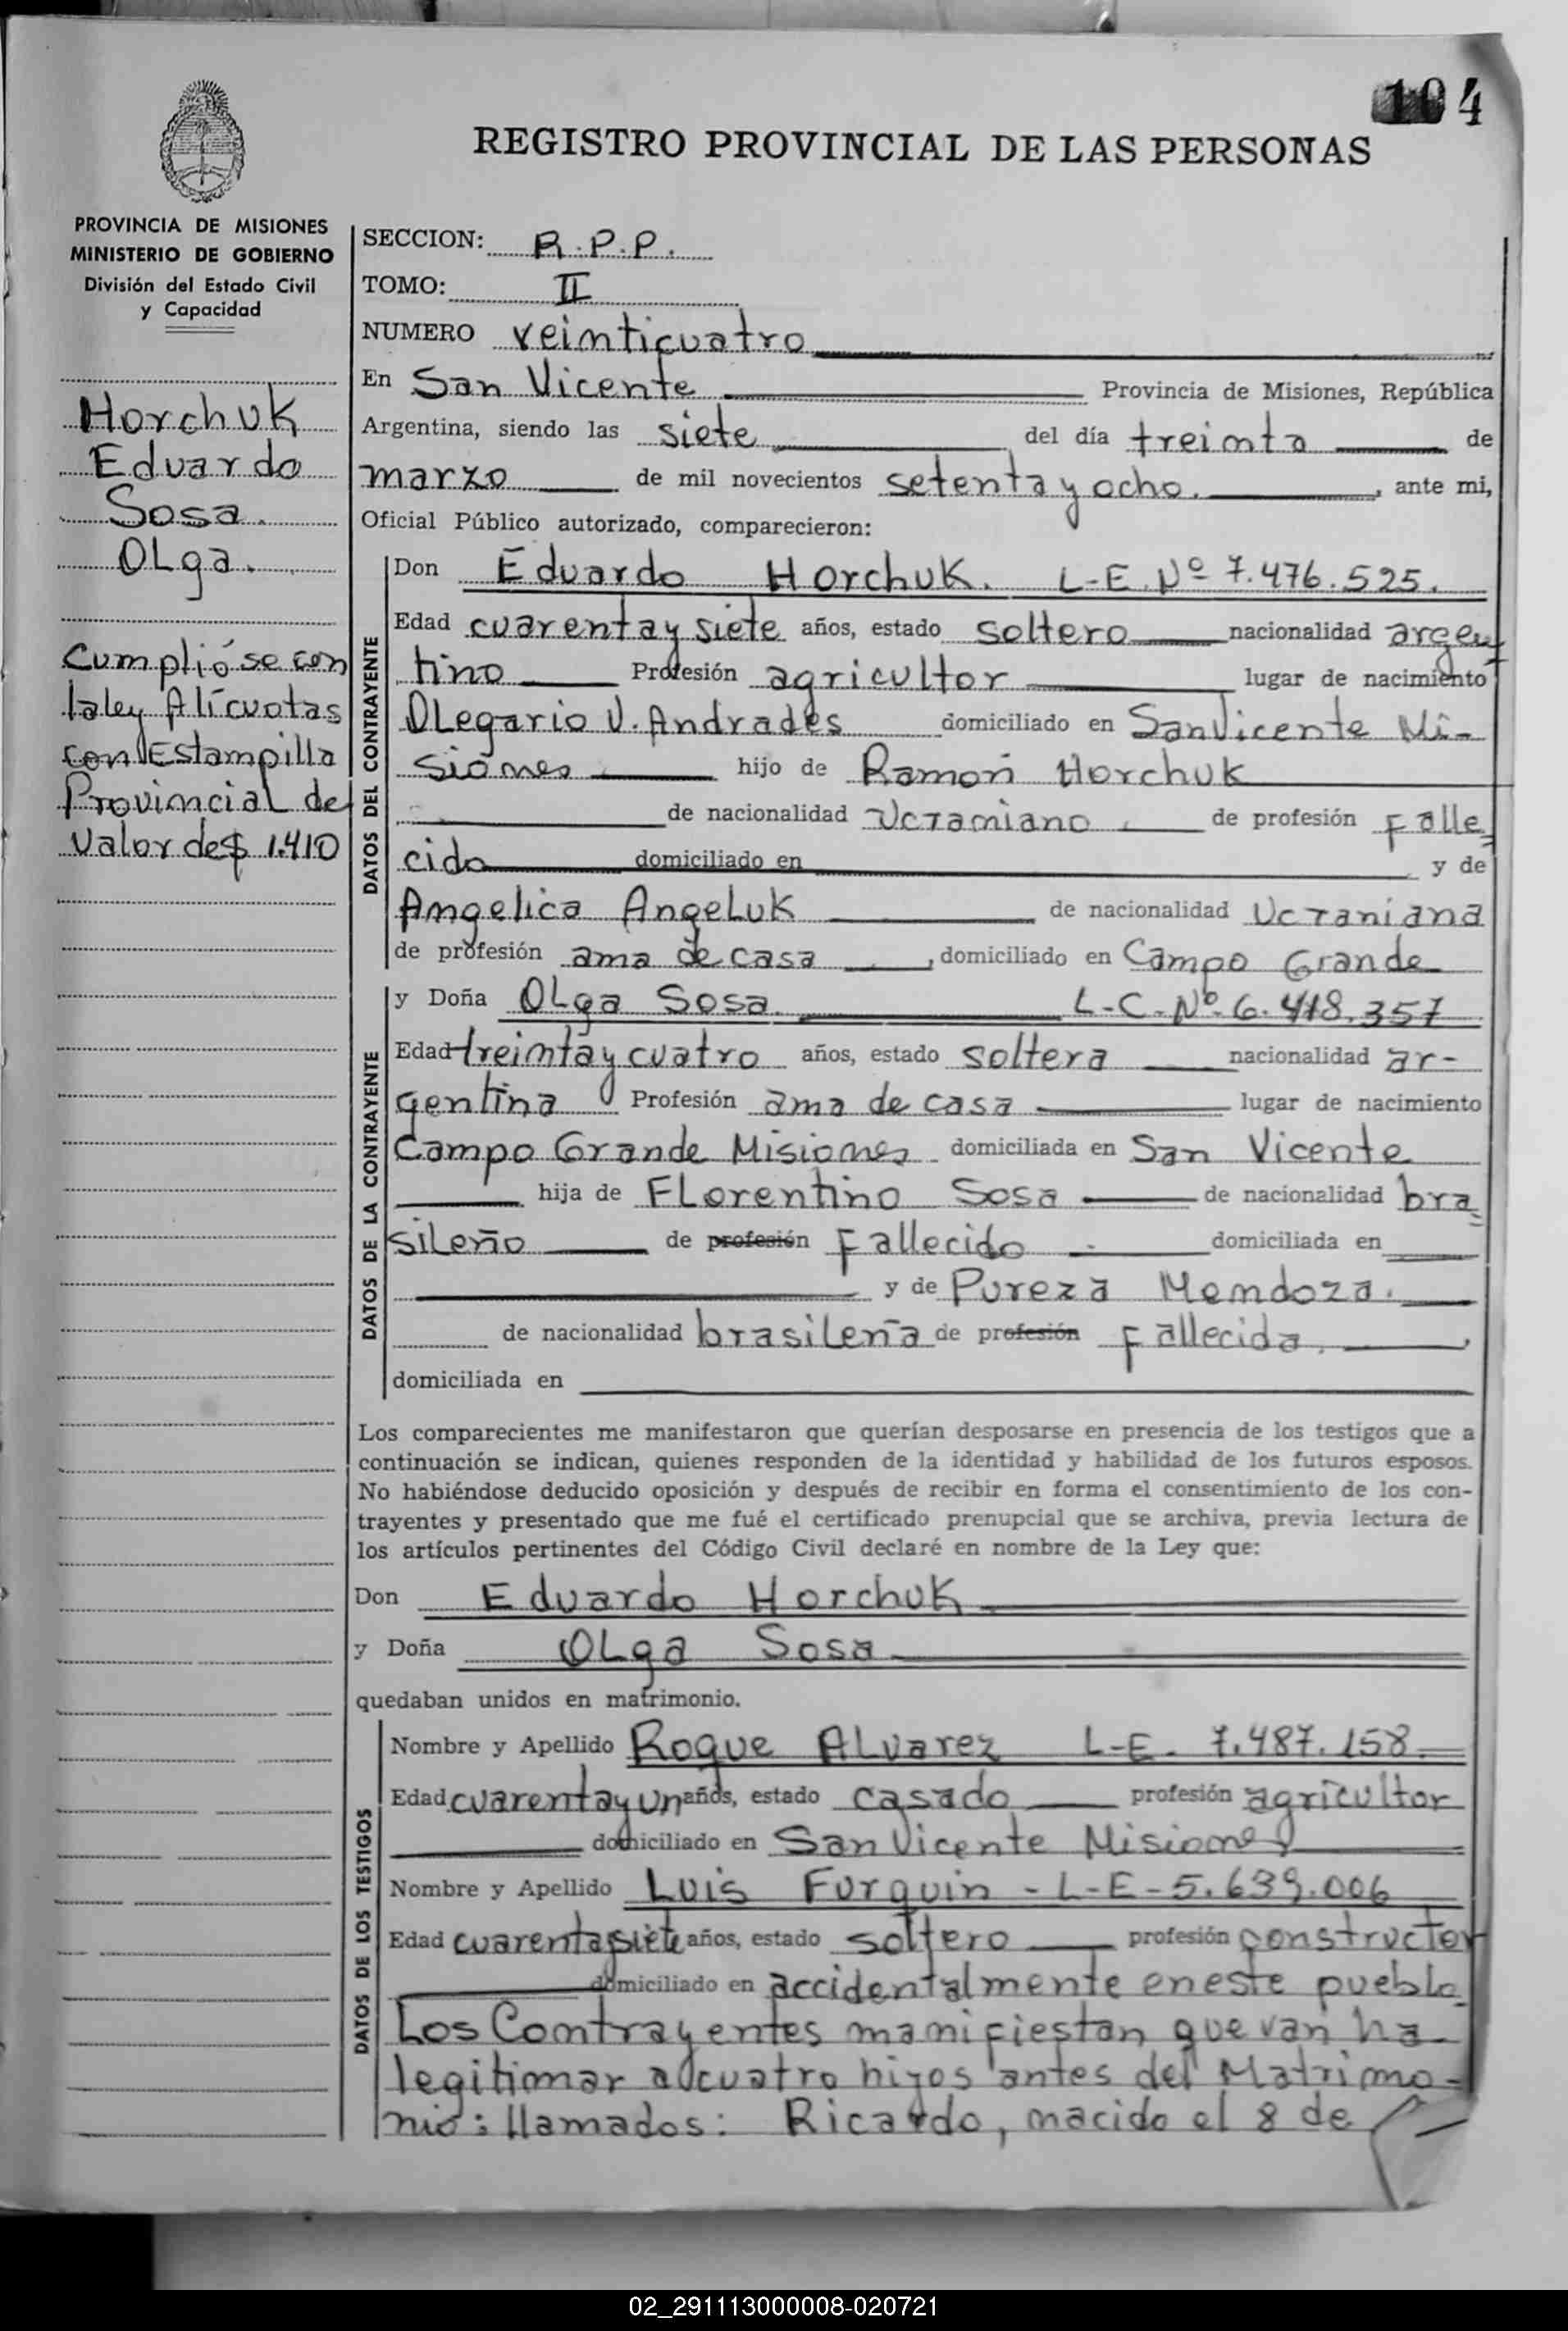 104
REGISTRO PROVINCIAL DE LAS PERSONAS
PROVINCIA DE MISIONES
MINISTERIO DE GOBIERNO
División del Estado Civil
y Capacidad
Horchuk
Eduardo
Sosa.
Olga.
Cumplióse con
la ley Alícuotas
con Estampilla
Provincial de
valor de $ 1.410
SECCION: R.P.P.
TOMO: II
NUMERO veinticuatro
En San Vicente Provincia de Misiones, República
Argentina, siendo las siete del día treinta de
marzo de mil novecientos setenta y ocho. , ante mi,
Oficial Público autorizado, comparecieron:
DATOS DEL CONTRAYENTE
Don Eduardo Horchuk. L-E. Nº 7.476.525.
Edad cuarenta y siete años, estado soltero nacionalidad argen
tino Profesión agricultor lugar de nacimiento
Olegario V. Andrades domiciliado en San Vicente Mi-
siones hijo de Ramon Horchuk
de nacionalidad Ucraniano de profesión falle
cido domiciliado en y de
Angelica Angeluk de nacionalidad Ucraniana
de profesión ama de casa , domiciliado en Campo Grande
DATOS DE LA CONTRAYENTE
y Doña Olga Sosa. L-C-Nº 6.418.357
Edad treinta y cuatro años, estado soltera nacionalidad ar-
gentina Profesión ama de casa lugar de nacimiento
Campo Grande Misiones domiciliada en San Vicente
hija de Florentino Sosa de nacionalidad bra
sileño de profesión fallecido domiciliada en
y de Pureza Mendoza.
de nacionalidad brasileña de profesión fallecida. ,
domiciliada en
Los comparecientes me manifestaron que querían desposarse en presencia de los testigos que a
continuación se indican, quienes responden de la identidad y habilidad de los futuros esposos.
No habiéndose deducido oposición y después de recibir en forma el consentimiento de los con-
trayentes y presentado que me fué el certificado prenupcial que se archiva, previa lectura de
los artículos pertinentes del Código Civil declaré en nombre de la Ley que:
Don Eduardo Horchuk
y Doña Olga Sosa
quedaban unidos en matrimonio.
DATOS DE LOS TESTIGOS
Nombre y Apellido Roque Alvarez L-E- 7.487.158
Edad cuarenta y un años, estado casado profesión agricultor
domiciliado en San Vicente Misiones
Nombre y Apellido Luis Furquin - L-E-5.639.006
Edad cuarenta y siete años, estado soltero profesión constructor
domiciliado en accidentalmente en este pueblo
Los Contrayentes manifiestan que van ha
legitimar a cuatro hijos antes del Matrimo-
nio: llamados: Ricardo, nacido el 8 de
02_291113000008-020721